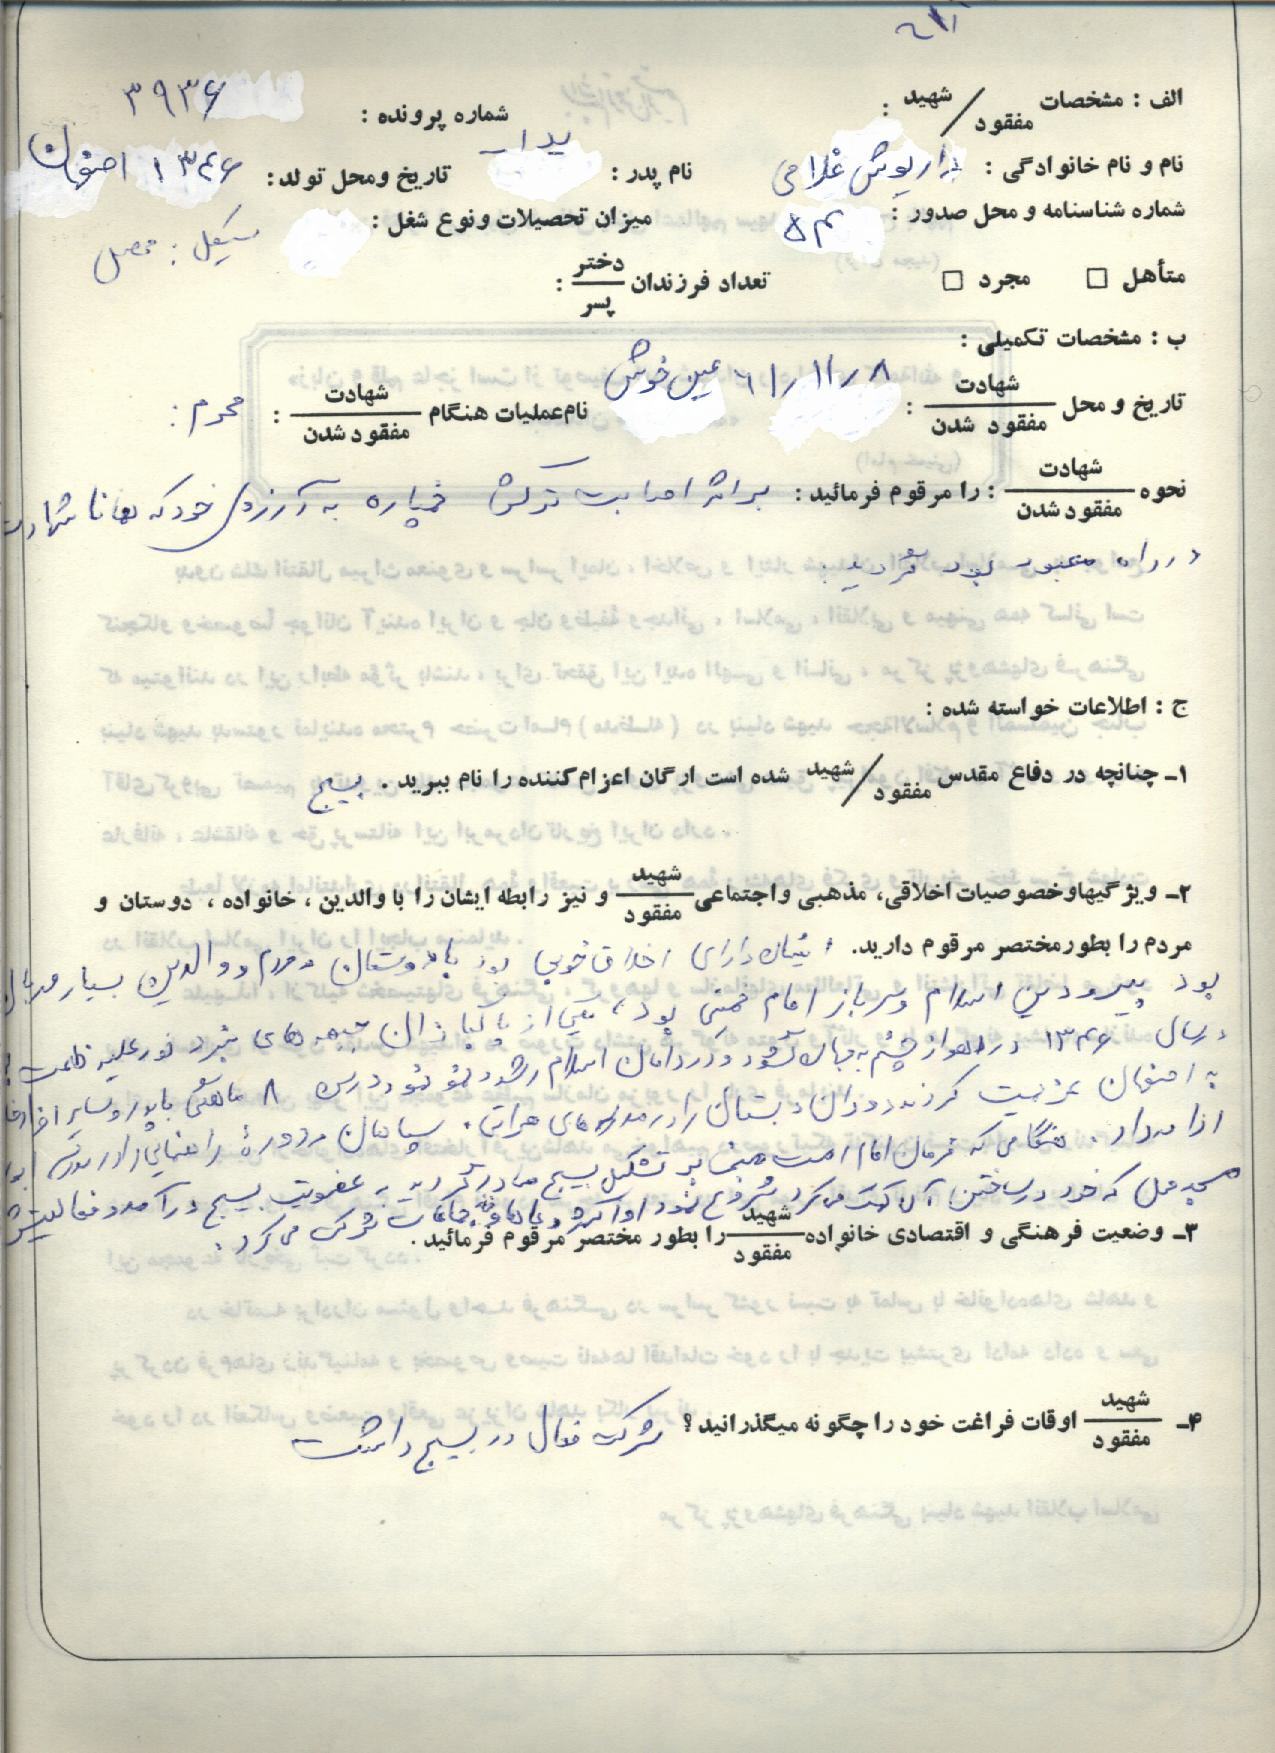 الف : مشخصات شهید / مفقود :
شماره پرونده : ۳۹۳۶
نام و نام خانوادگی : داریوش غلامی نام پدر : یداله تاریخ ومحل تولد : ۱۳۴۶ اصفهان
شماره شناسنامه و محل صدور : ۵۴ میزان تحصیلات و نوع شغل : سیکل : محصل
متأهل □ مجرد □ تعداد فرزندان دختر / پسر :
ب : مشخصات تکمیلی :
تاریخ و محل شهادت / مفقود شدن : ۶۱/۱۱/۸ عین خوش نام عملیات هنگام شهادت / مفقود شدن : محرم :
نحوه شهادت / مفقود شدن : را مرقوم فرمائید : براثر اصابت ترکش خمپاره به آرزوی خود که همانا شهادت
در راه معبود بود
ج : اطلاعات خواسته شده :
۱ـ چنانچه در دفاع مقدس شهید / مفقود شده است ارگان اعزام کننده را نام ببرید . بسیج
۲ـ ویژگیها و خصوصیات اخلاقی، مذهبی و اجتماعی شهید / مفقود و نیز رابطه ایشان را با والدین ، خانواده ، دوستان و
مردم را بطور مختصر مرقوم دارید. ایشان دارای اخلاق خوبی بود با دوستان و مردم و والدین بسیار مهربان
بود پیرو دین اسلام و سرباز امام خمینی بود، یکی از پاکبازان جبهه های نبرد نور علیه ظلمت
در سال ۱۳۴۶ در اهواز چشم به جهان گشود و در دامان اسلام رشد و نمو نمود در سن ۸ ماهگی با پدر و سایر افراد
به اصفهان عزیمت کردند دوران دبستان را در مدرسه های سپاهان و دوره راهنمائی را در مدرسه
ادامه داد . هنگامی که فرمان امام امت مبنی بر تشکیل بسیج صادر گردید به عضویت بسیج در آمد و فعالیتش
مسجد محل که خود در ساختن آن کمک می کرد شروع نمود او اکثر دعاها و نماز جماعات شرکت می کرد .
۳ـ وضعیت فرهنگی و اقتصادی خانواده شهید / مفقود را بطور مختصر مرقوم فرمائید .
۴ـ شهید / مفقود اوقات فراغت خود را چگونه میگذرانید ؟ شرکت فعال در بسیج داشت